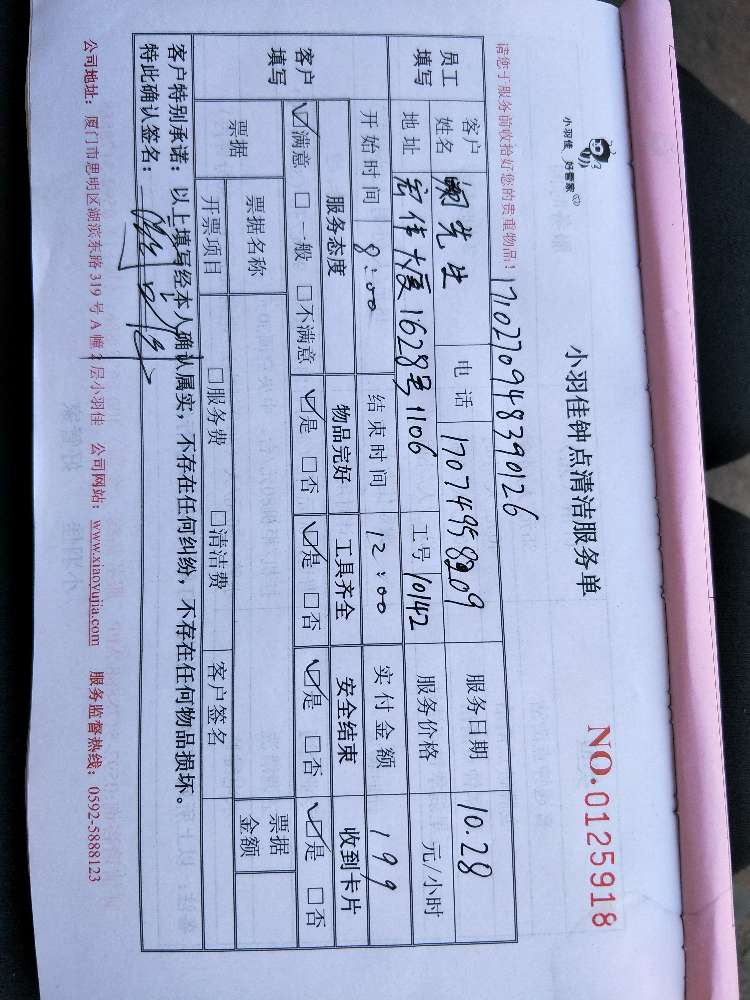 小羽佳 好管家
小羽佳钟点清洁服务单
NO.0125918
请您于服务前收拾好您的贵重物品！
1710270948390126
员工填写
客户姓名 先生 电话 17074958209 服务日期 10.28
地址 宏伟大厦1628号1106 工号 10142 服务价格 元/小时
客户填写
开始时间 8:00 结束时间 12:00 实付金额 199
服务态度 物品完好 工具齐全 安全结束 收到卡片
☑满意 □一般 □不满意 ☑是 □否 ☑是 □否 ☑是 □否 ☑是 □否
票据 票据名称 票据金额
开票项目 □服务费 □清洁费 客户签名
客户特别承诺：以上填写经本人确认属实，不存在任何纠纷，不存在任何物品损坏。
特此确认签名：
公司地址：厦门市思明区湖滨东路319号A幢2层小羽佳 公司网站：www.xiaoyujia.com 服务监督热线：0592-5888123